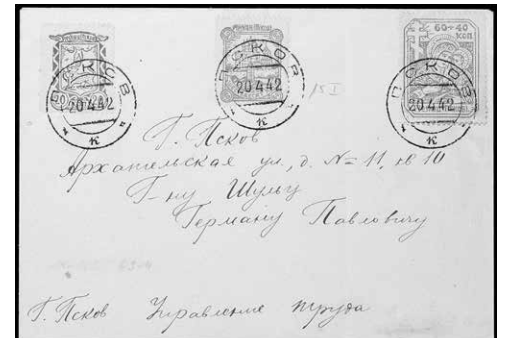 60+40
коп
ПСКОВ
20.4.42
к
ПСКОВ
20.4.42
к
ПСКОВ
20.4.42
к
15 I
Г. Псков
Архангельская ул., д. № 11, кв 10
Г-ну Шульц
Герману Павловичу
Г. Псков Управление труда